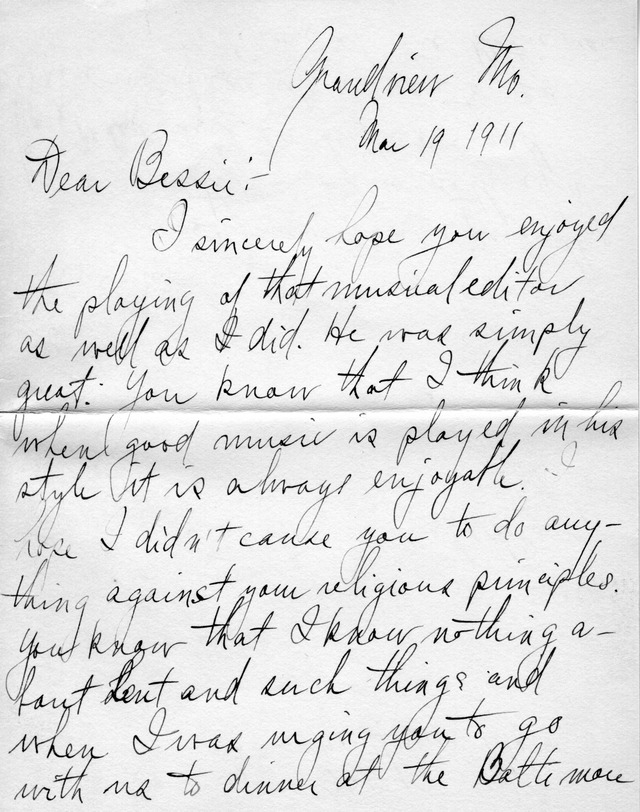 Grandview Mo.
Mar 19 1911
Dear Bessie:-
I sincerely hope you enjoyed
the playing of that musical editor
as well as I did. He was simply
great. You know that I think
when good music is played in his
style it is always enjoyable. I
hope I didn't cause you to do any-
thing against your religious principles.
You know that I know nothing a-
bout Lent and such things and
when I was urging you to go
with us to dinner at the Baltimore